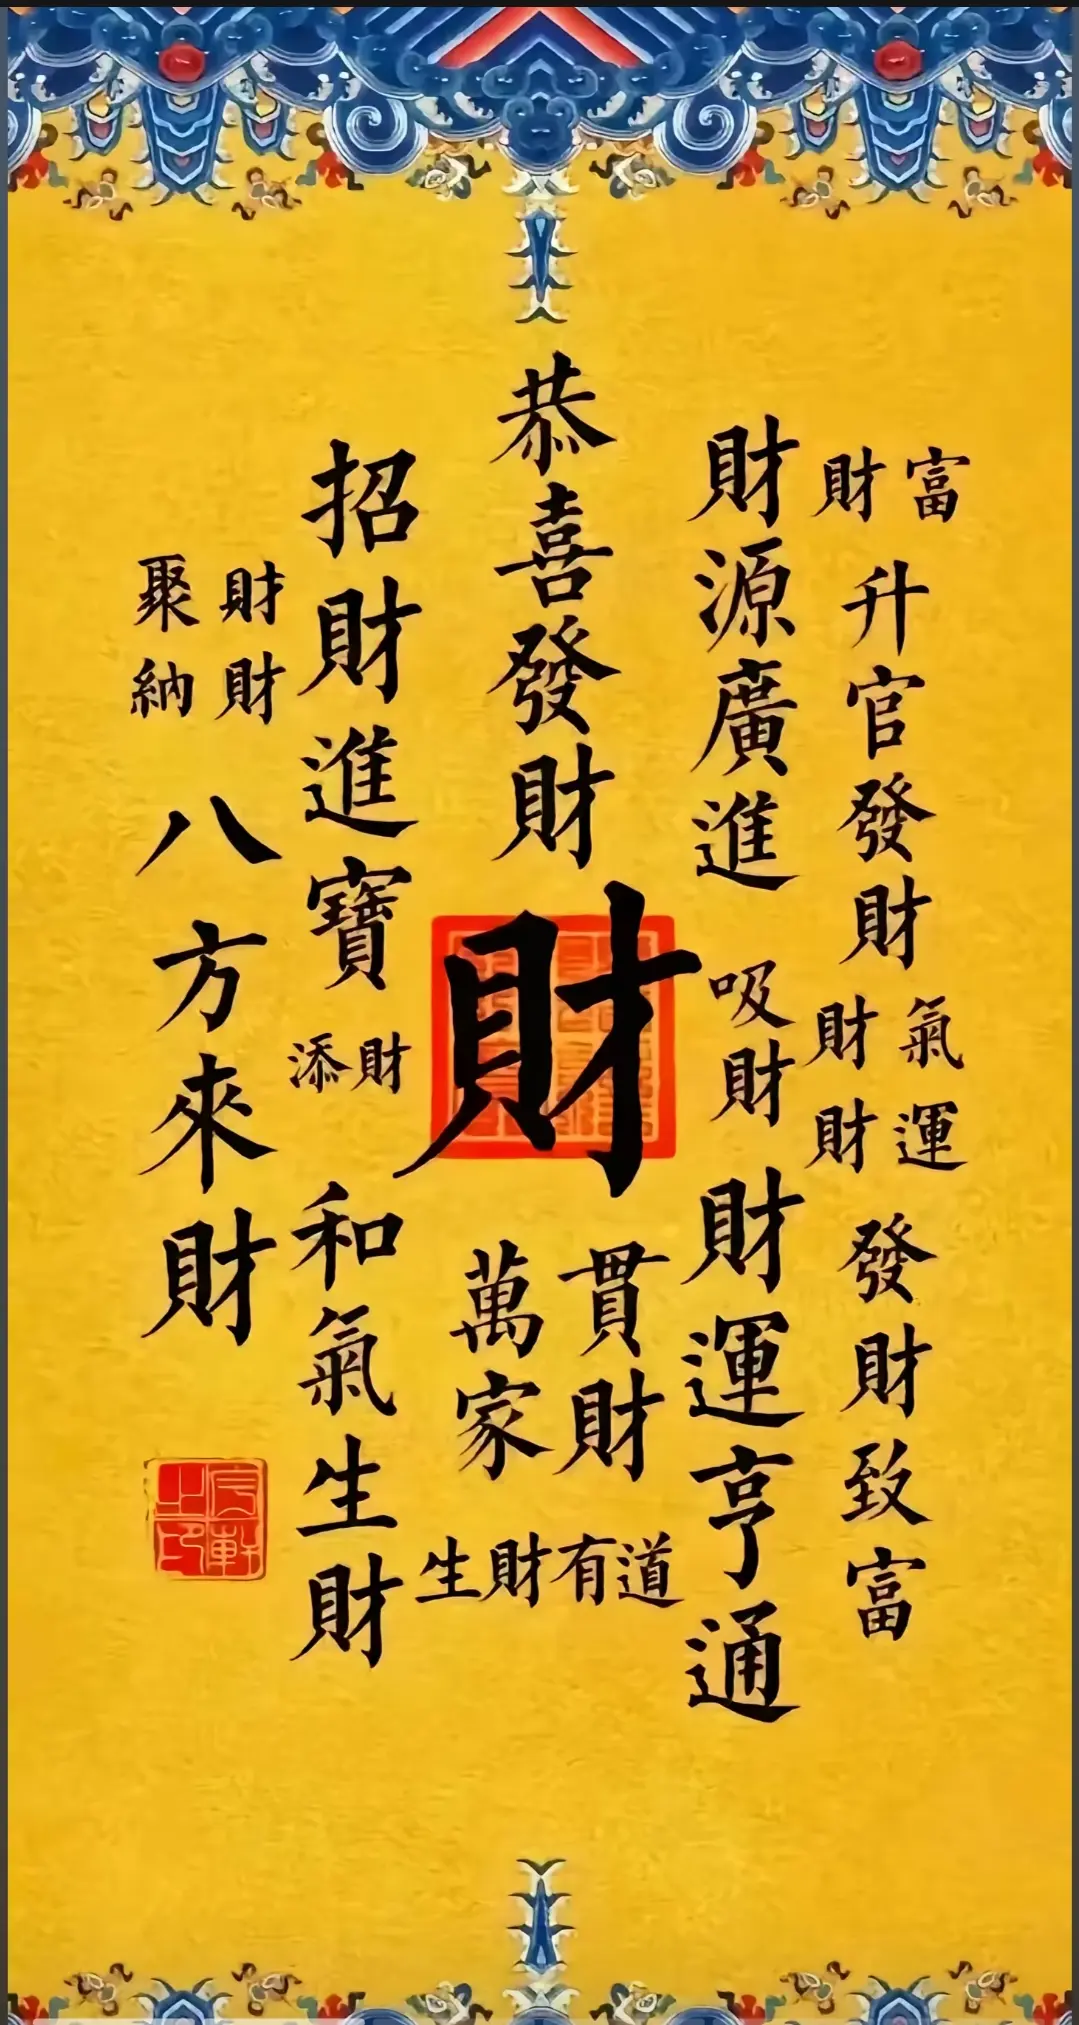 財富
升官發財
財氣
財運
發財致富
財源廣進
吸財
財運亨通
恭喜發財
財
貫財
萬家
生財有道
招財進寶
添財
和氣生財
聚財
納財
八方來財